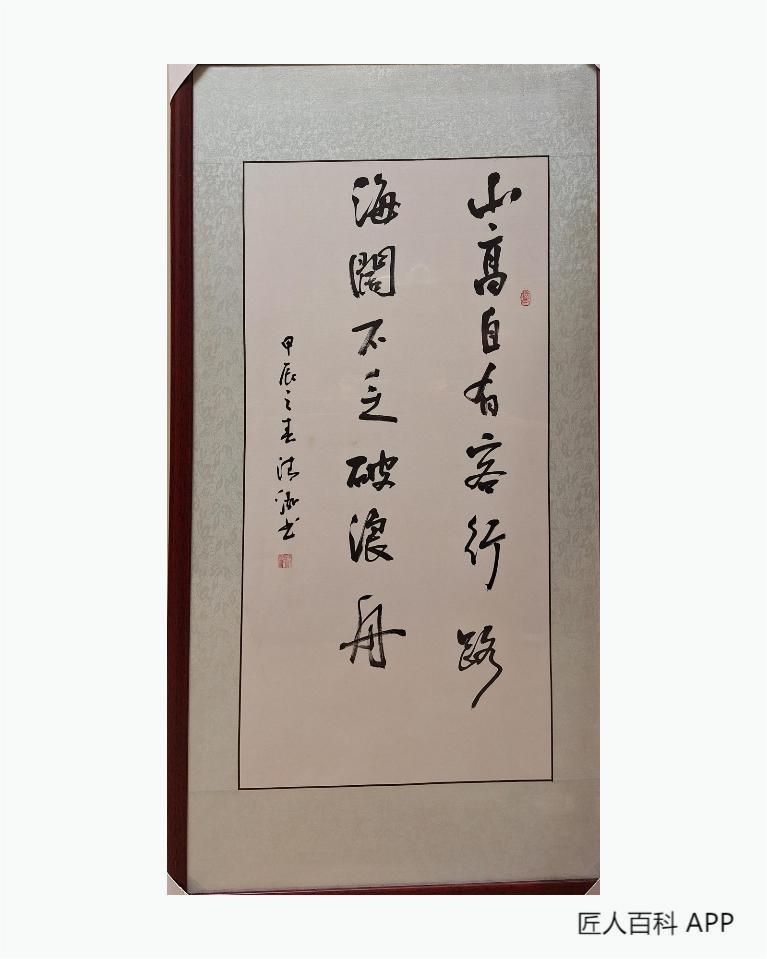 山高自有客行路
海闊不乏破浪舟
甲辰之春
書
匠人百科 APP